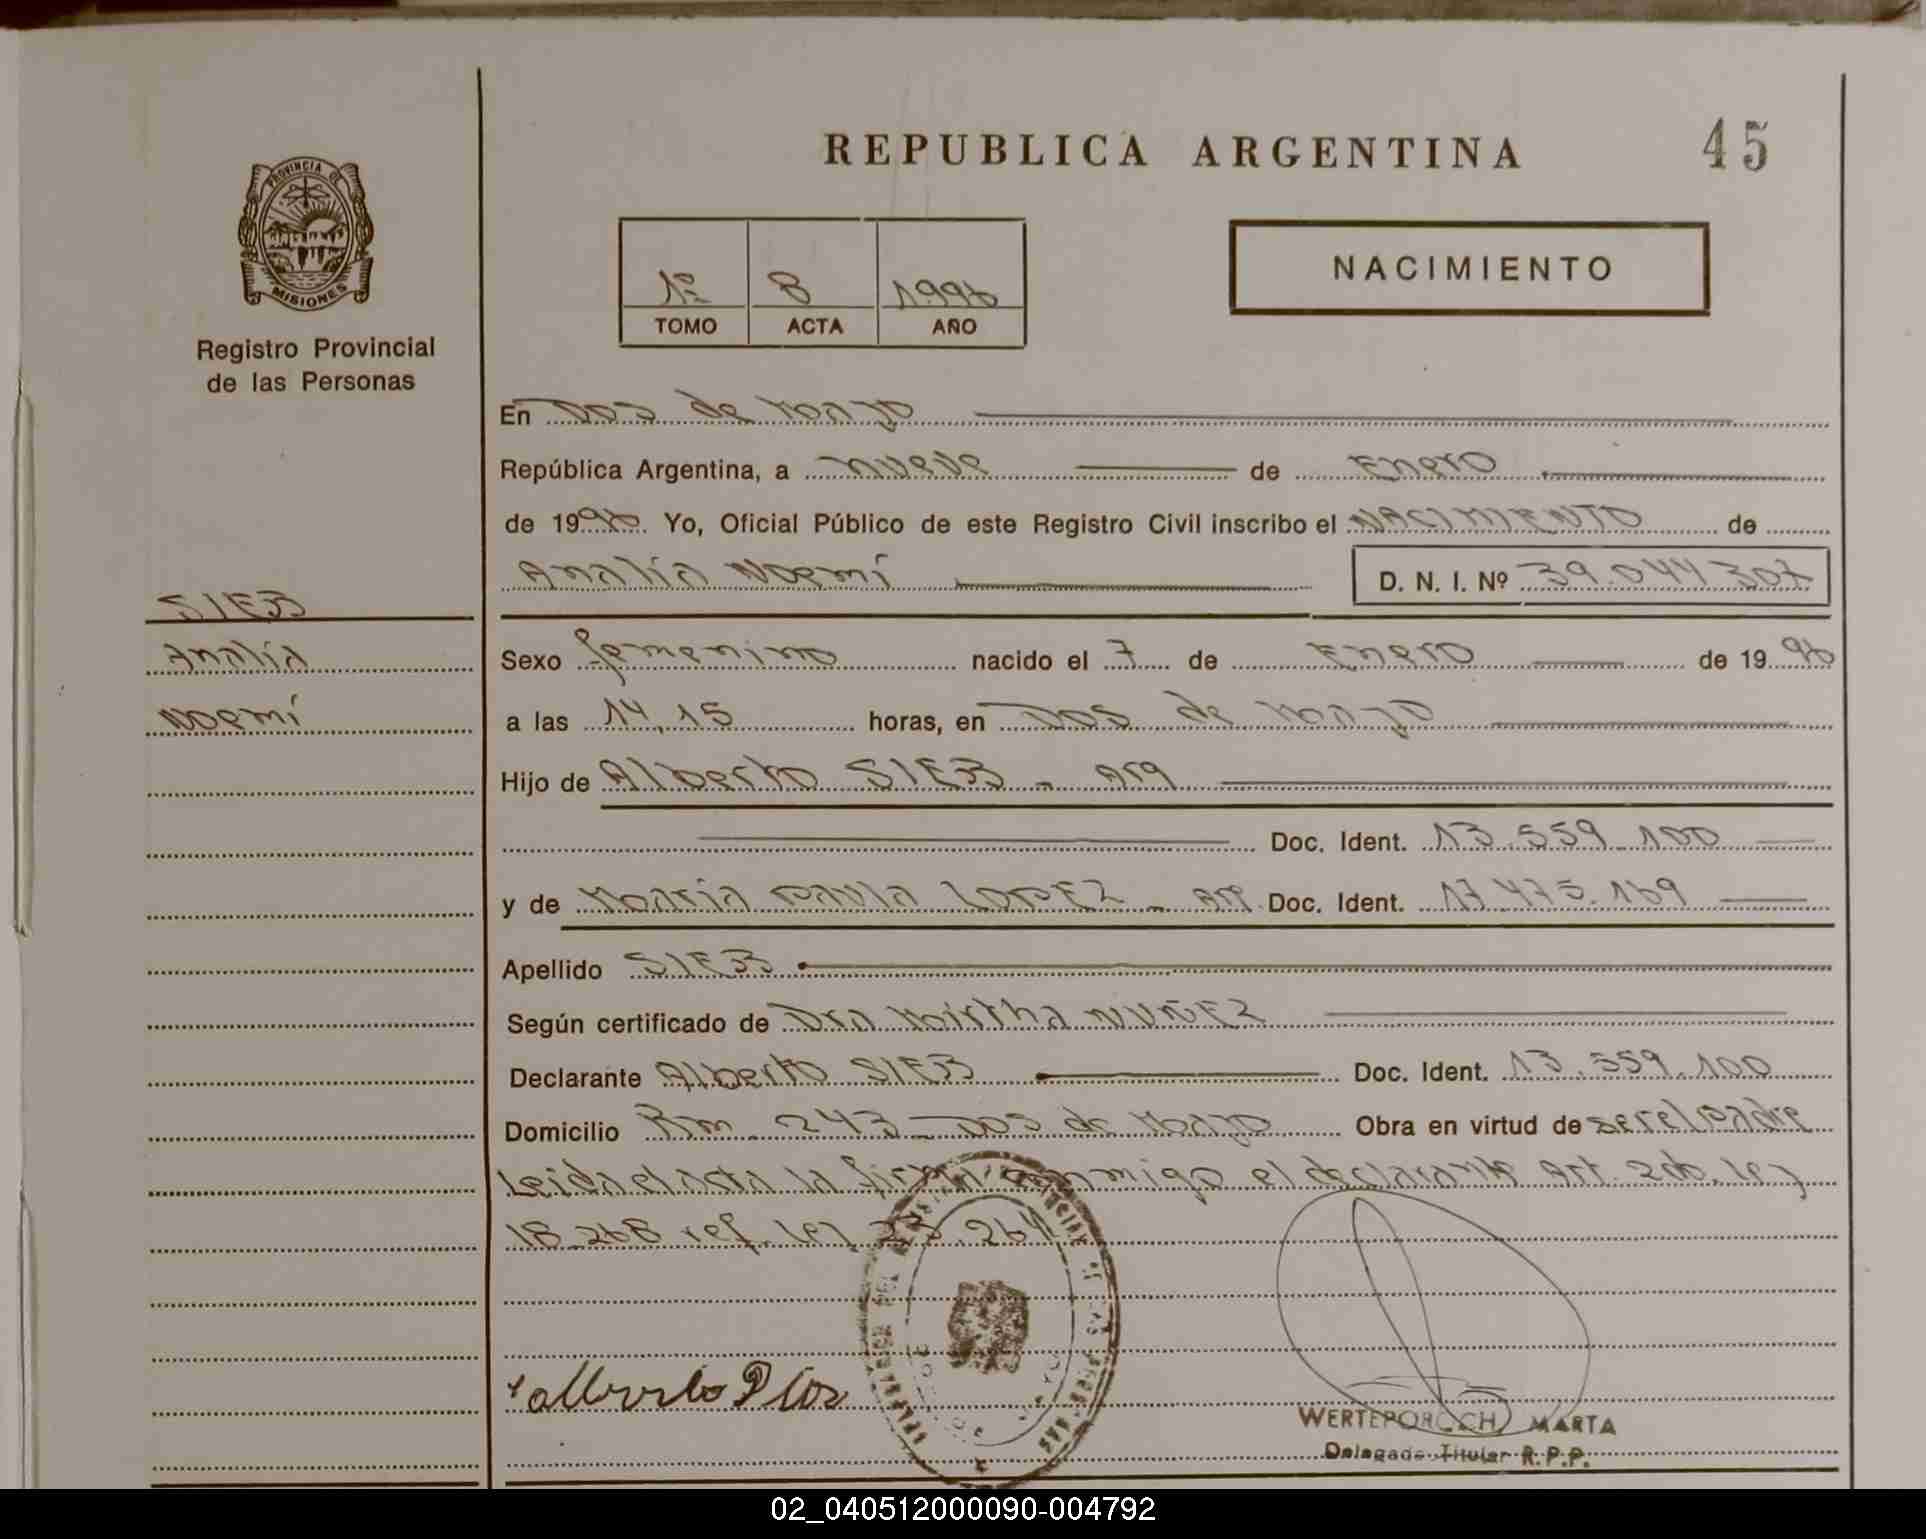 REPUBLICA ARGENTINA
45
PROVINCIA DE
MISIONES
Registro Provincial
de las Personas
1º 8 1996
TOMO ACTA AÑO
NACIMIENTO
En Dos de Mayo
República Argentina, a nueve de Enero
de 1996. Yo, Oficial Público de este Registro Civil inscribo el NACIMIENTO de
Analía Noemí D. N. I. Nº 39.044.307
SIEB
Analía
Noemí
Sexo femenino nacido el 7 de Enero de 1996
a las 14,15 horas, en Dos de Mayo
Hijo de Alberto SIEB - Arg
Doc. Ident. 13.559.100
y de María Paula LOPEZ - Arg. Doc. Ident. 17.475.169
Apellido SIEB
Según certificado de Dra Mirtha NUÑEZ
Declarante Alberto SIEB Doc. Ident. 13.559.100
Domicilio Km 243 - Dos de Mayo Obra en virtud de ser el padre
Leida el acta la firma conmigo el declarante Art. 2do. ley
18.268 ref. ley 23.264
WERTEPOROCH MARTA
Delegado Titular R.P.P.
02_040512000090-004792